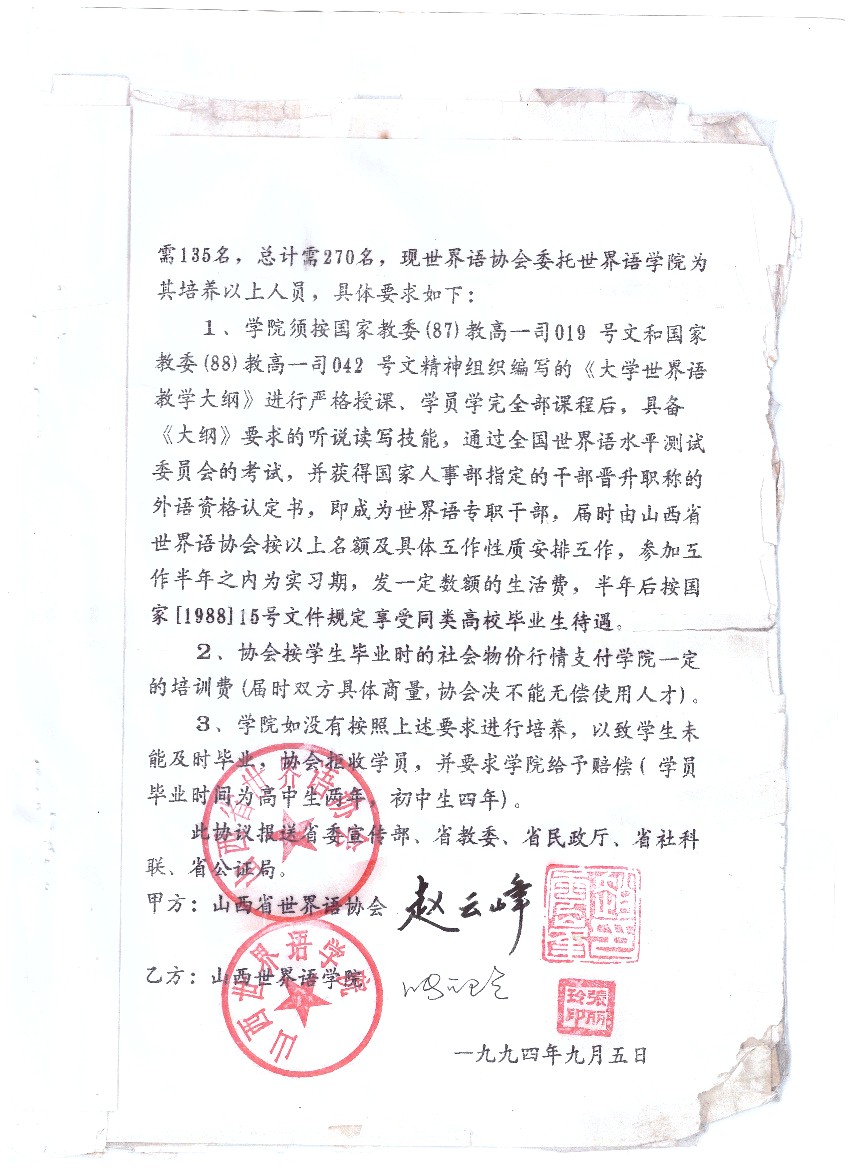 需135名，总计需270名，现世界语协会委托世界语学院为
其培养以上人员，具体要求如下：
1、学院须按国家教委(87)教高一司019 号文和国家
教委(88)教高一司042 号文精神组织编写的《大学世界语
教学大纲》进行严格授课、学员学完全部课程后，具备
《大纲》要求的听说读写技能，通过全国世界语水平测试
委员会的考试，并获得国家人事部指定的干部晋升职称的
外语资格认定书，即成为世界语专职干部，届时由山西省
世界语协会按以上名额及具体工作性质安排工作，参加工
作半年之内为实习期，发一定数额的生活费，半年后按国
家[1988]15号文件规定享受同类高校毕业生待遇。
2、协会按学生毕业时的社会物价行情支付学院一定
的培训费(届时双方具体商量,协会决不能无偿使用人才)。
3、学院如没有按照上述要求进行培养，以致学生未
能及时毕业，协会拒收学员，并要求学院给予赔偿( 学员
毕业时间为高中生两年，初中生四年)。
此协议报送省委宣传部、省教委、省民政厅、省社科
联、省公证局。
甲方：山西省世界语协会 赵云峰
山西省世界语协会
乙方：山西世界语学院
山西世界语学院
張丽玲印
一九九四年九月五日